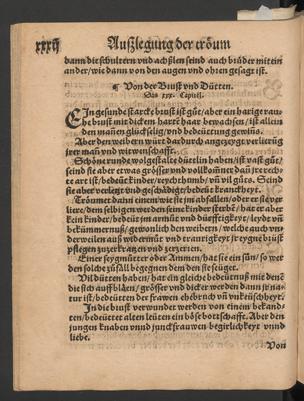 xxxij Außlegung der tröum
dann die schultern vnd achßlen seind auch brüder mit ein
ander/wie dann von den augen vnd ohren gesagt ist.
¶ Von der Brust vnd Dütten.
Das xxv. Capitel.
EIn gesunde starcke brust ist gůt/aber ein harige rau
he brust mit dickem harte haar bewachsen/ist allein
den mañen glückselig/vnd bedeüttung gewins.
Aber den weibern würt dardurch angezeygt verlierūg
jrer mañ vnd witwenschafft.
Schöne runde wolgestalte dütelin haben/ist vast gůt/
seind sie aber etwas grösser vnd vollkom̃er dañ jre rech
te art ist/bedeüt kinder/reychthumb/vñ vil gůts. Seind
sie aber verletzt vnd geschädigt/bedeüt kranckheyt.
Tröumet dann einem wie sie jm abfallen/oder er sie ver
liere/dem selbigen werden seine kinder sterbē/hat er aber
kein kinder/bedeüt jm armůt vnd dürfftigkeyt/leyd vñ
bekümmernuß/gewonlich den weibern/welche auch vn
derweilen auß widermůt vnd traurigkeyt jr eygne brüst
pflegen zuzerkratzen vnd zerzerren.
Einer seygmůter oder Ammen/hat sie ein sün/so wer
den solche zůfäll begegnen dem den sie seüget.
Vil dütten haben/hat ein gleiche bedeütnuß mit denē
die sich auffblåen/grösser vnd dicker werden dann jr na-
tur ist/bedeütten der frawen ehebruch vñ vnkeüschheyt.
In die brust verwundet werden von einem bekand-
ten/bedeüttet alten leüten ein böse bottschafft. Aber den
jungen knaben vnnd junckfrauwen begirlichkeyt vnnd
liebe.
Von